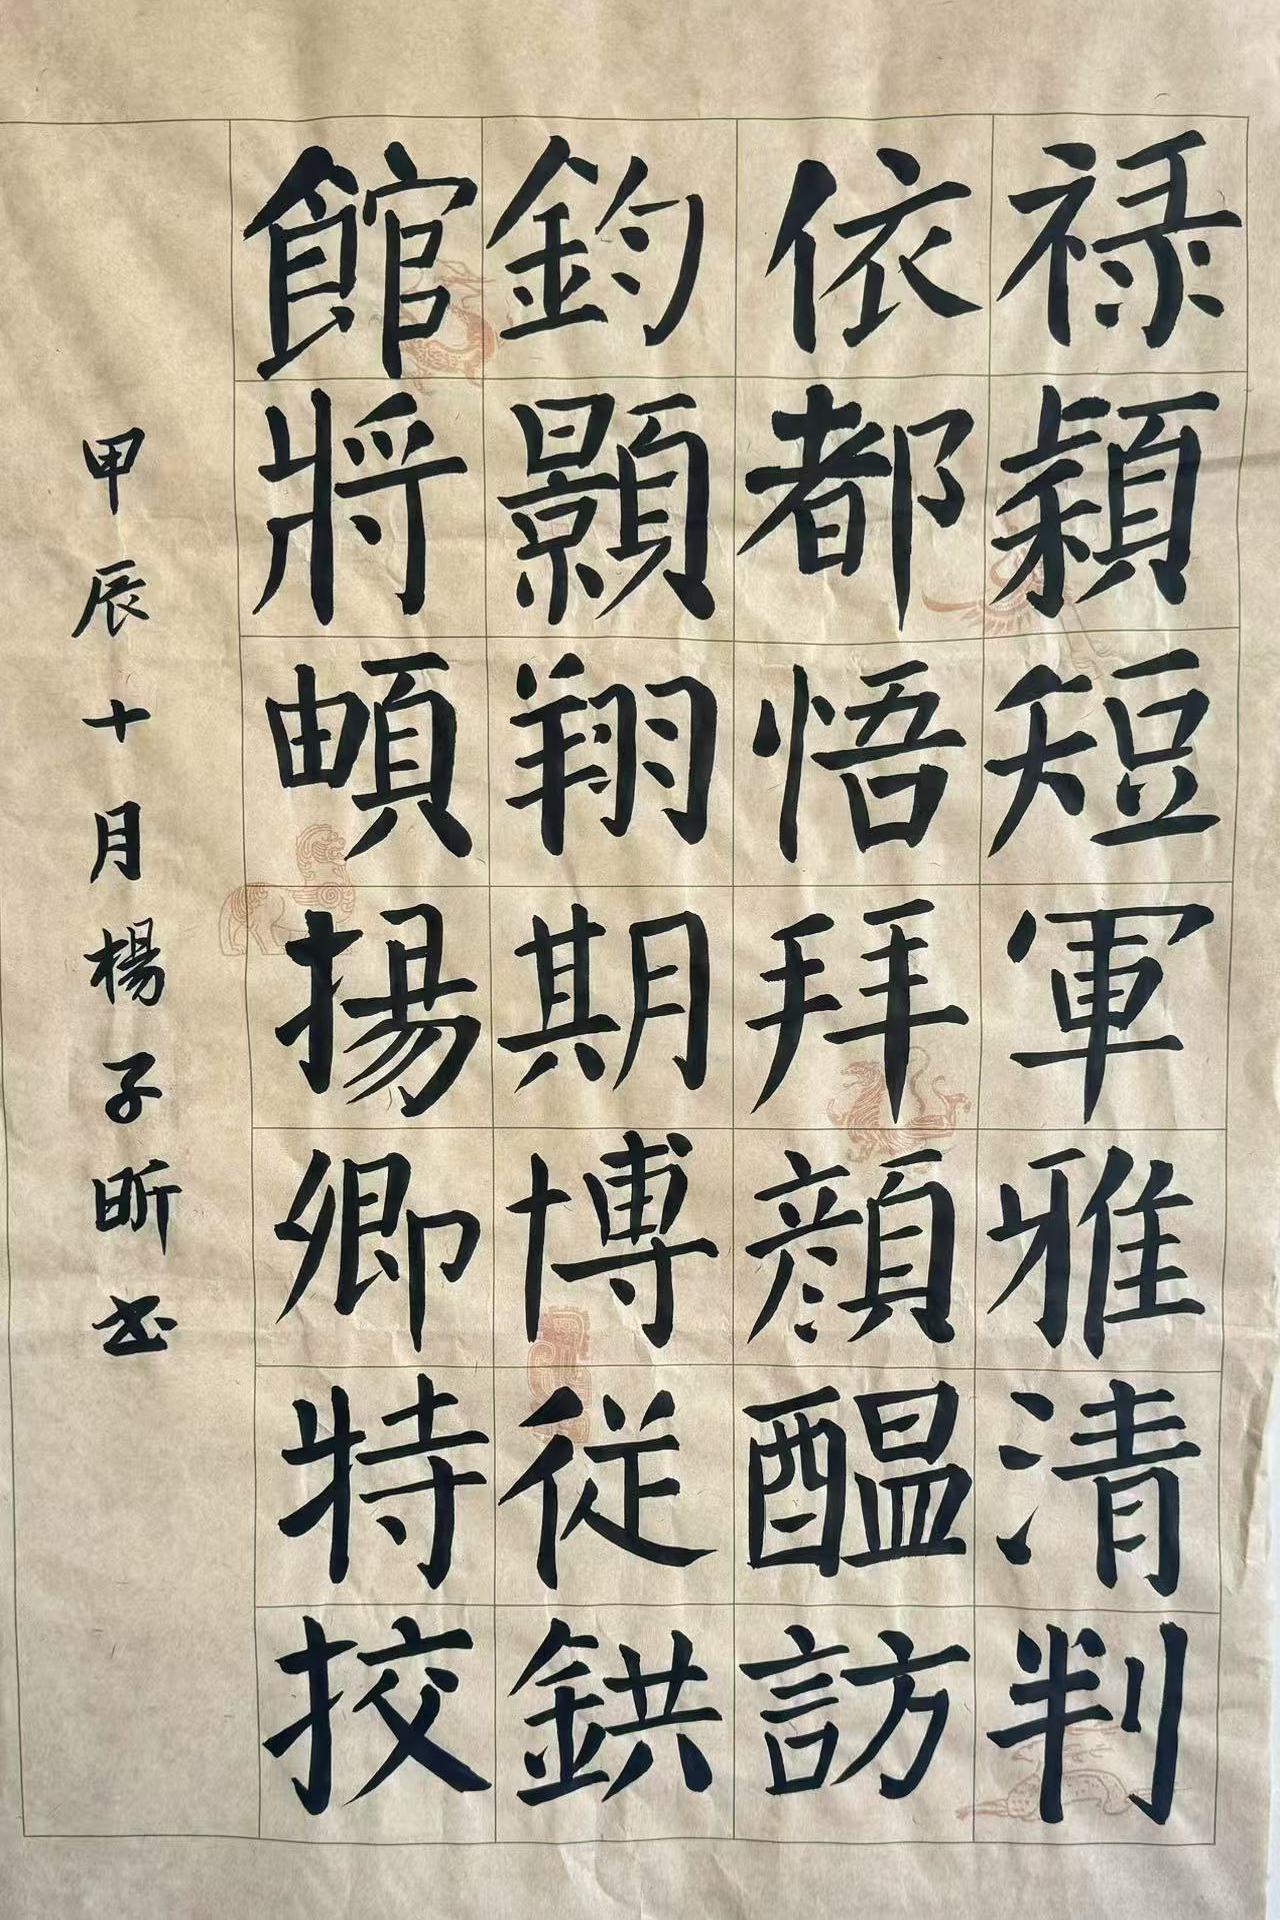 祿潁短軍雅清判
依都悟拜顏醖訪
鈞顥翔期博従鉷
館將頔揚卿特挍
甲辰十月楊子昕书